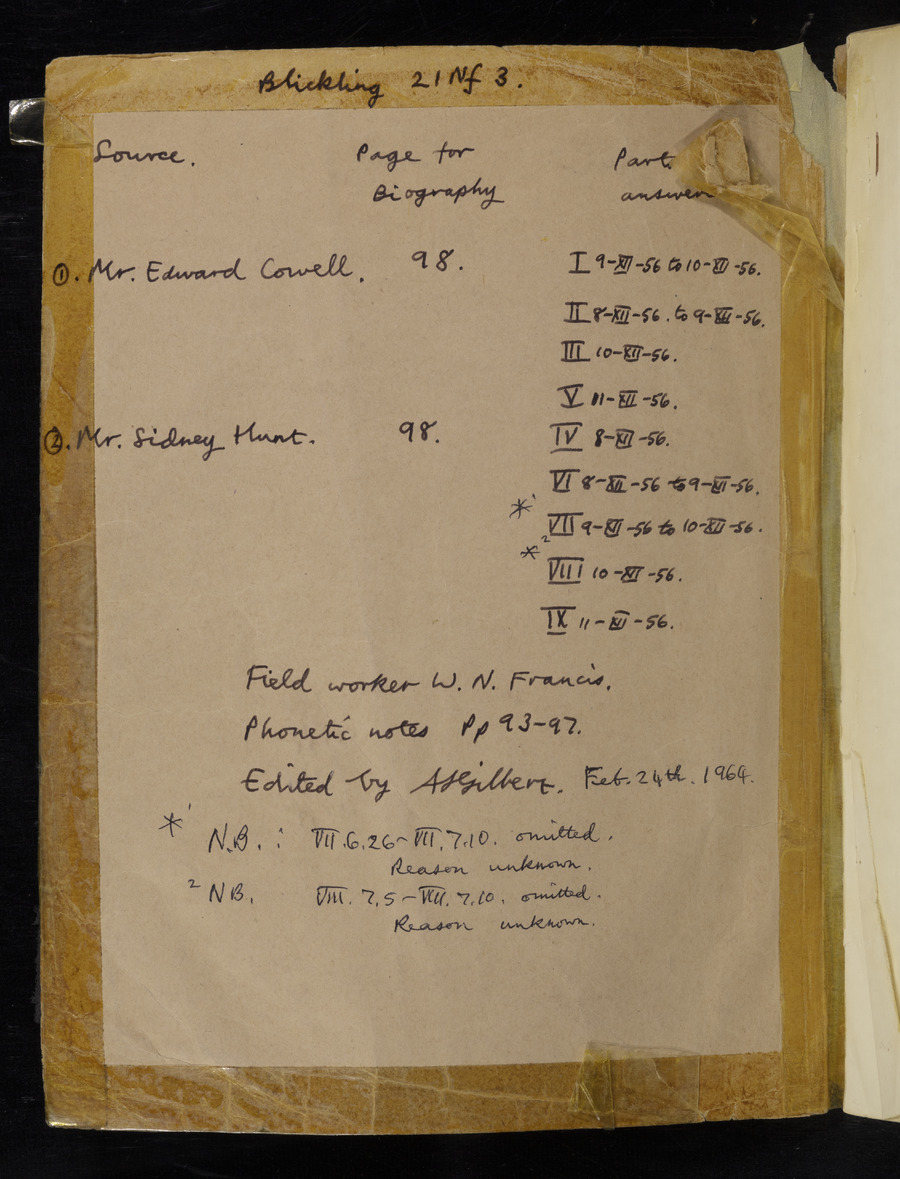 Blickling 21Nf 3.
Source. Page for Part.
Biography answer
①. Mr. Edward Cowell. 98. I 9-XII-56 to 10-XII-56.
II 8-XII-56. to 9-XII-56.
III 10-XII-56.
V 11-XII-56.
②. Mr. Sidney Hunt. 98. IV 8-XII-56.
VI 8-XII-56 to 9-XII-56.
*1 VII 9-XII-56 to 10-XII-56.
*2 VIII 10-XII-56.
IX 11-XII-56.
Field worker W. N. Francis.
Phonetic notes Pp 93-97.
Edited by ASGilbert. Feb. 24th. 1964.
*1 N.B. : VII.6.26-VII.7.10. omitted.
Reason unknown.
2 NB. VIII. 7.5-VIII. 7.10. omitted.
Reason unknown.